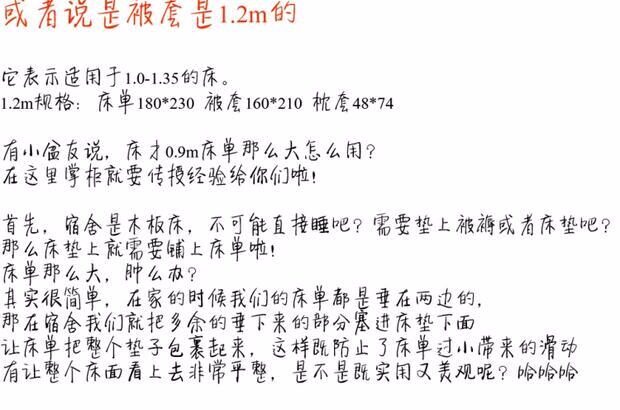 或者说是被套是1.2m的
它表示适用于1.0-1.35的床。
1.2m规格: 床单180*230 被套160*210 枕套48*74
有小盆友说，床才0.9m床单那么大怎么用?
在这里掌柜就要传授经验给你们啦!
首先，宿舍是木板床，不可能直接睡吧? 需要垫上被褥或者床垫吧?
那么床垫上就需要铺上床单啦!
床单那么大，肿么办?
其实很简单，在家的时候我们的床单都是垂在两边的，
那在宿舍我们就把多余的垂下来的部分塞进床垫下面
让床单把整个垫子包裹起来，这样既防止了床单过小带来的滑动
有让整个床面看上去非常平整，是不是既实用又美观呢? 哈哈哈